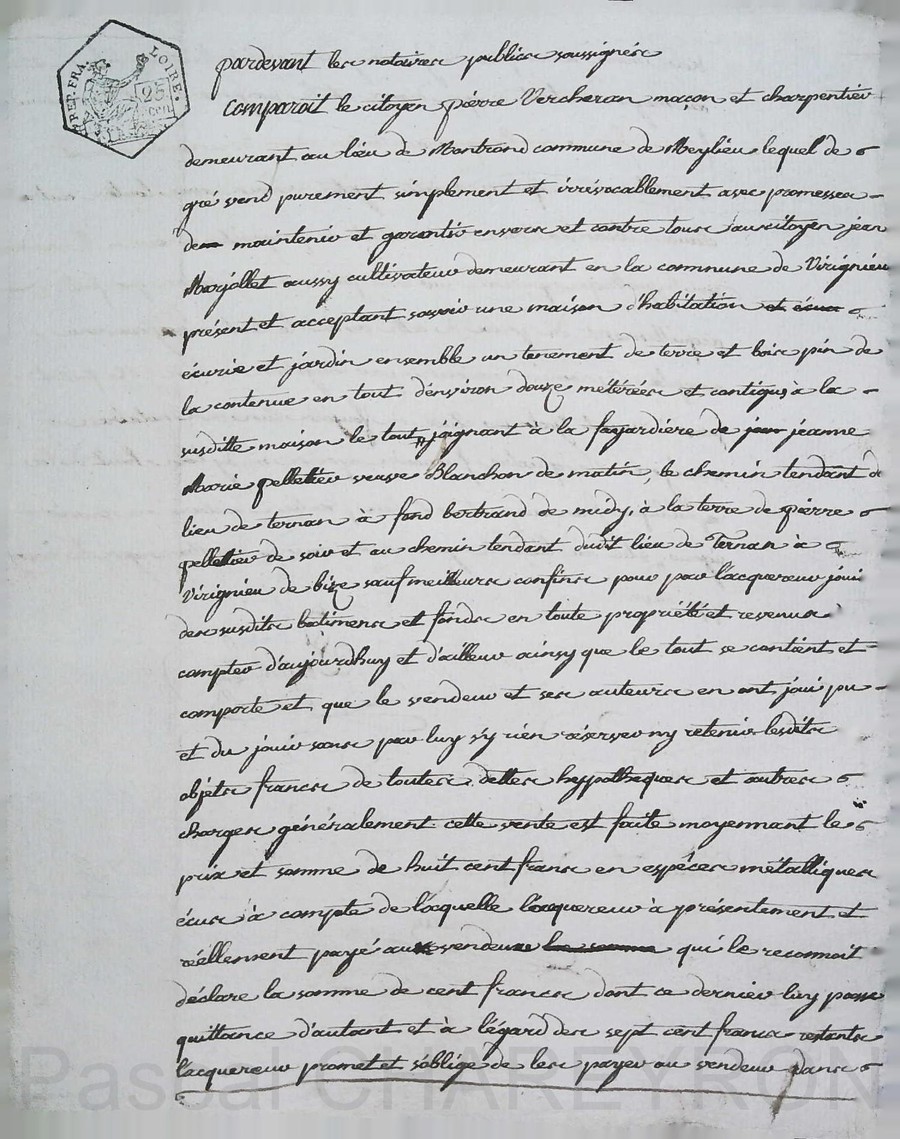 REP. FRA. LOIRE.
25
pardevant les notaires publics soussignés
Comparoit le citoyen pierre Vercheran maçon et charpentier
demeurant au lieu de Montrond commune de Meylieu lequel de
gré vend purement simplement et irrévocablement avec promesses
de maintenir et garantir envers et contre tous au citoyen jean
Marjollet aussy cultivateur demeurant en la commune de Virignieu
présent et acceptant savoir une maison d'habitation et écur
écurie et jardin ensemble un tenement de terre et bois pin de
la contenue en tout d'environ douze métérées et contigus à la
susditte maison le tout joignant à la fayardière de jean jeanne
Marie pelletier veuve Blanchon de matin, le chemin tendant du
lieu de ternan à fond bertrand de midy, à la terre de pierre
pelletier de soir et au chemin tendant dudit lieu de Ternan à
Virignieu de bize sauf meilleurs confins pour par l'acquereur joui
des susdits batimens et fonds en toute propriété et revenus à
compter d'aujourdhuy et d'ailleur ainsy que le tout se contient et
comporte et que le vendeur et ses auteurs en ont joui pu
et du jouir sans par luy s'y rien réserver ny retenir lesdits
objets francs de touttes dettes hypotheques et autres
charges généralement cette vente est faite moyennant le
prix et somme de huit cent francs en espéces métalliques
écus à compte de laquelle l'acquereur à présentement et
réellement payé au vendeur la somme qui le reconnoit
déclare la somme de cent francs dont ce dernier luy passe
quittance d'autant et à l'égard des sept cent francs restants
l'acquereur promet et s'oblige de les payer au vendeur dans
Pascal CHAREYRON